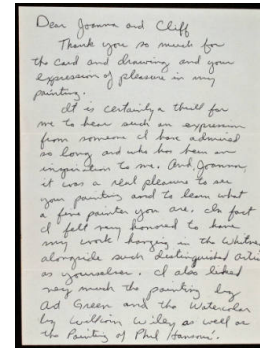 Dear Joanna and Cliff
Thank you so much for
the card and drawing and your
expression of pleasure in my
painting.
It is certainly a thrill for
me to hear such an expression
from someone I have admired
so long and who has been an
inspiration to me. And, Joanna,
it was a real pleasure to see
your painting and to learn what
a fine painter you are. In fact
I felt very honored to have
my work hanging in the Whitney
alongside such distinguished artists
as yourselves. I also liked
very much the painting by
Ad Green and the Watercolor
by William Wiley as well as
the Painting of Phil Hanson.